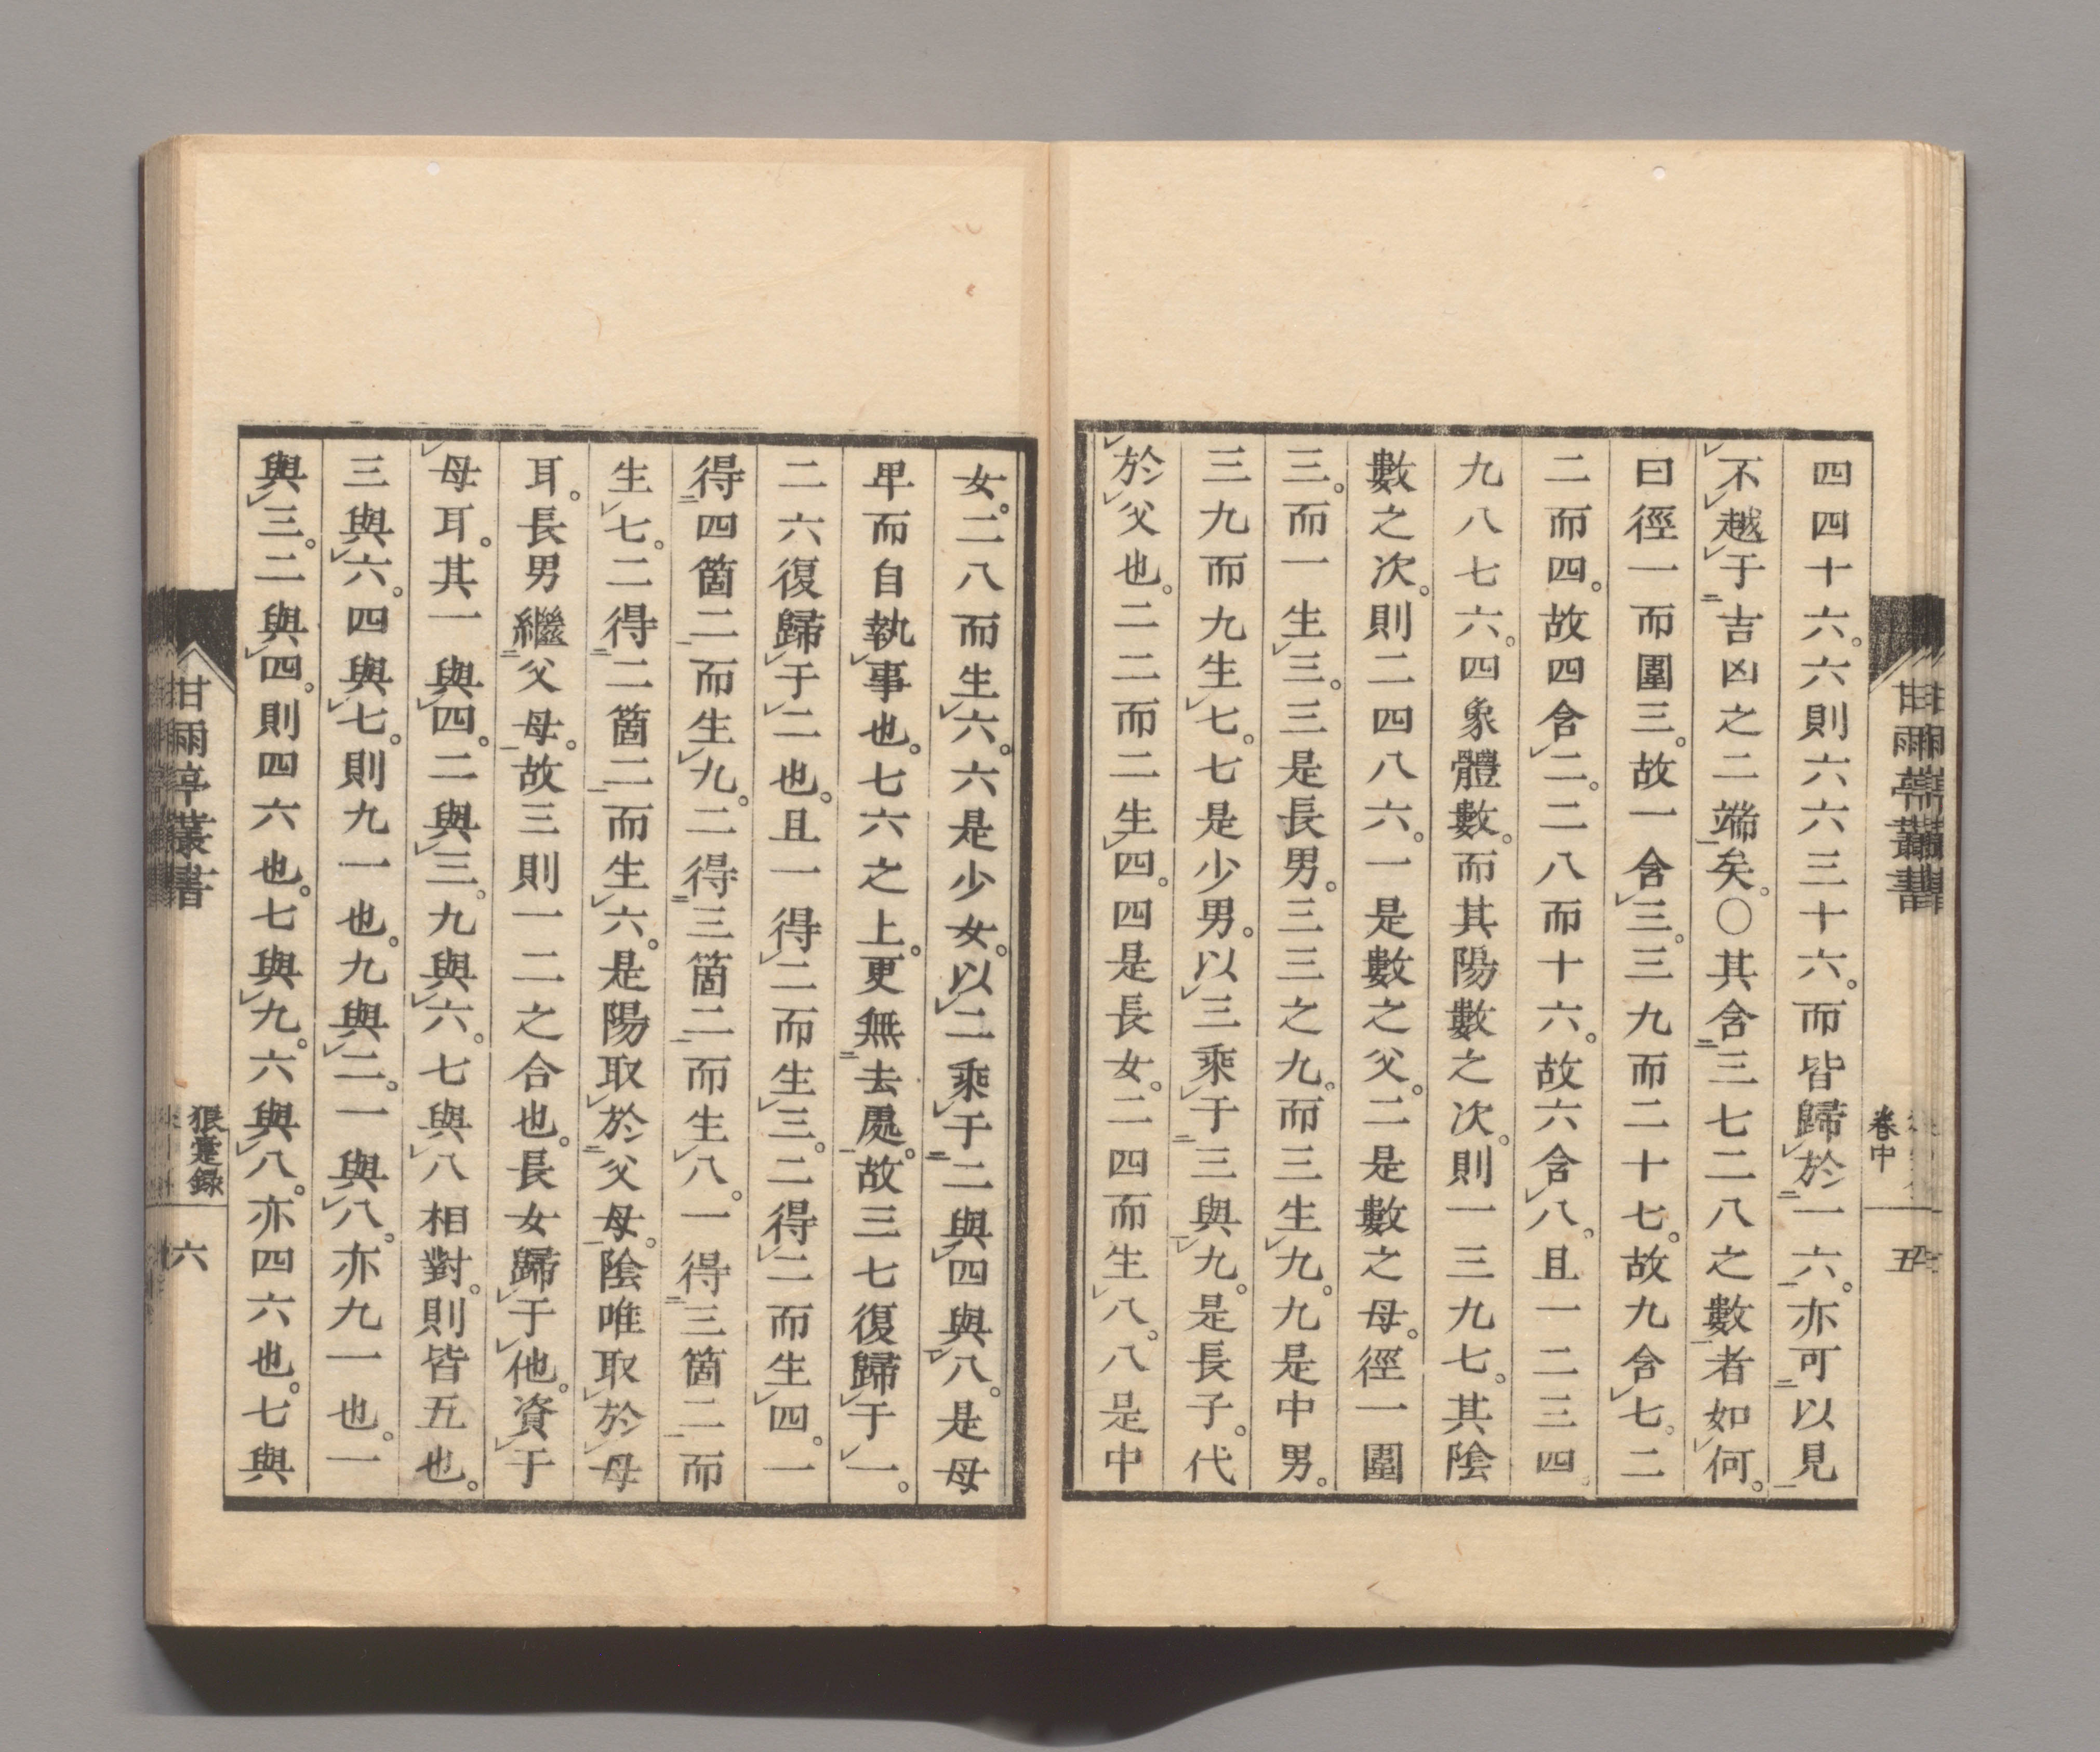 四四十六。六則六六三十六。而皆歸於一六。亦可以見
不越于吉凶之二端矣。○其含三七二八之數者如何。
曰徑一而圍三。故一含三。三九而二十七。故九含七。二
二而四。故四含二。二八而十六。故六含八。且一二三四
九八七六。四象體數。而其陽數之次。則一三九七。其陰
數之次。則二四八六。一是數之父。二是數之母。徑一圍
三。而一生三。三是長男。三三之九。而三生九。九是中男。
三九而九生七。七是少男。以三乘于三與九。是長子。代
於父也。二二而二生四。四是長女。二四而生八。八是中
甘雨亭叢書
卷中
五
女。二八而生六。六是少女。以二乘于二與四與八。是母
早而自執事也。七六之上。更無去處。故三七復歸于一。
二六復歸于二也。且一得二而生三。二得二而生四。一
得四箇二而生九。二得三箇二而生八。一得三箇二而
生七。二得二箇二而生六。是陽取於父母。陰唯取於母
耳。長男繼父母。故三則一二之合也。長女歸于他。資于
母耳。其一與四。二與三。九與六。七與八相對。則皆五也。
三與六。四與七。則九一也。九與二。一與八。亦九一也。一
與三。二與四。則四六也。七與九。六與八。亦四六也。七與
甘雨亭叢書
狼疐録
六